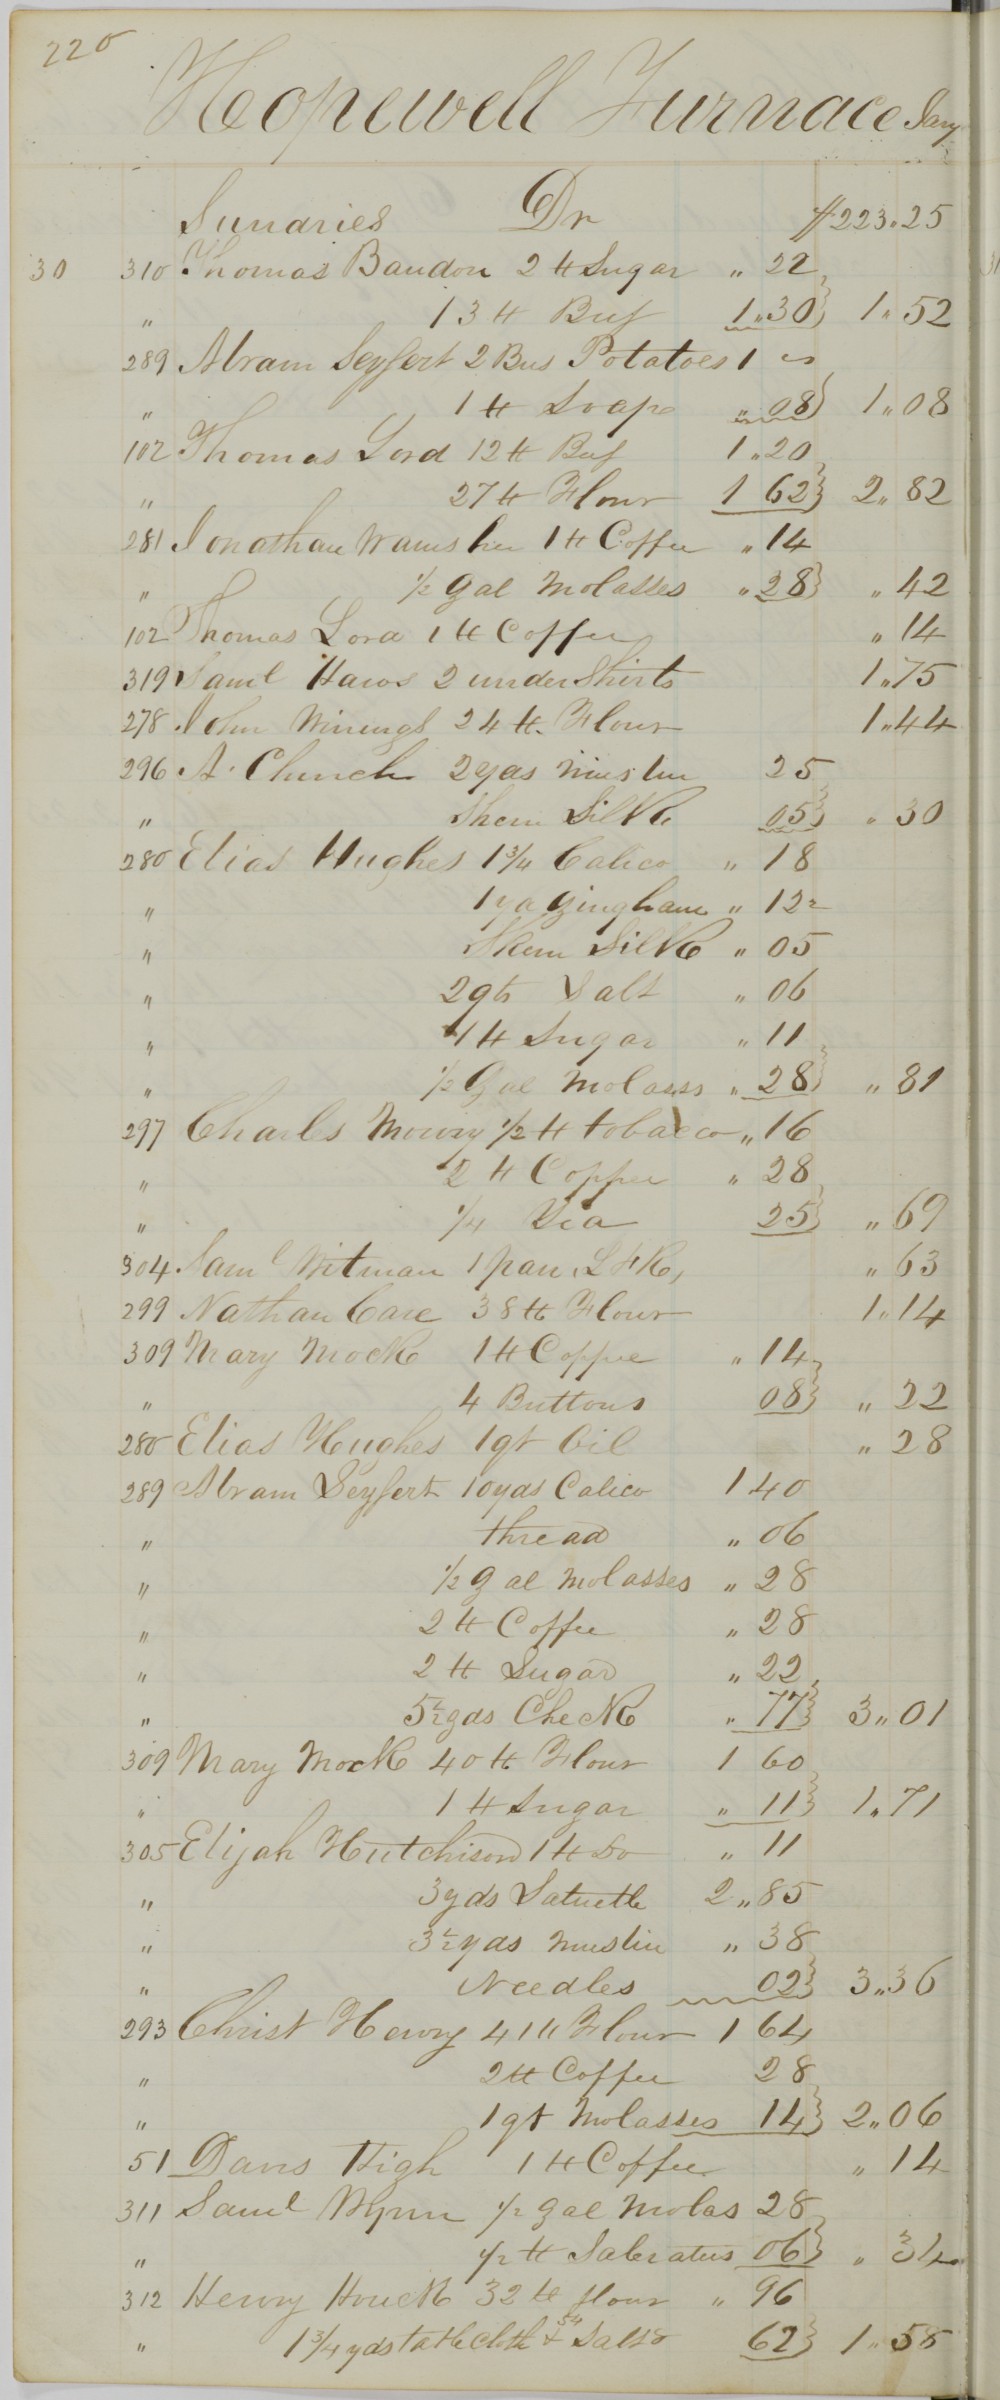 220
Hopewell Furnace Jany
Sundries Dr $223.25
30 310 Thomas Baudon 2 ℔ Sugar " 22
" 13 ℔ Buf 1.30 1"52
289 Abram Seyfert 2 Bus Potatoes 1 "
" 1 ℔ Soape " 08 1"08
102 Thomas Lord 12 ℔ Buf 1"20
" 27 ℔ Flour 1 62 2"82
281 Jonathan 1 ℔ Coffee " 14
" ½ gal Molasses " 28 " 42
102 Thomas Lord 1 ℔ Coffee " 14
319 Saml Haws 2 under Shirts 1"75
278 John 24 ℔ Flour 1"44
296 A. Church 2 yds Muslin 25
" Skein Silk 05 " 30
280 Elias Hughes 1¾ Calico " 18
" 1 yd Gingham " 12½
" Skein Silk " 05
" 2 qts Salt " 06
" 1 ℔ Sugar " 11
" ½ Gal Molasss " 28 " 81
297 Charles Mowry ½ ℔ tobacco " 16
" 2 ℔ Coffee " 28
" ¼ Tea 25 " 69
304 Saml Witman 1 pan " 63
299 Nathan Care 38 ℔ Flour 1"14
309 Mary Mock 1 ℔ Coffee " 14
" 4 Buttons 08 " 22
280 Elias Hughes 1 qt Oil " 28
289 Abram Seyfert 10 yds Calico 1 40
" thread " 06
" ½ gal Molasses " 28
" 2 ℔ Coffee " 28
" 2 ℔ Sugar " 22
" 5½ yds Check " 77 3"01
309 Mary Mock 40 ℔ Flour 1 60
" 1 ℔ Sugar " 11 1"71
305 Elijah Hutchison 1 ℔ Do " 11
" 3 yds Satinette 2"85
" 3½ yds Muslin " 38
" Needles 02 3"36
293 Christ Henry 41 ℔ Flour 1 64
" 2 ℔ Coffee 28
" 1 qt Molasses 14 2"06
51 Davis High 1 ℔ Coffee " 14
311 Saml Wynn ½ gal Molas 28
" ½ ℔ Saleratus 06 " 34
312 Henry Houck 32 ℔ flour " 96
" 1¾ yds table cloth 54 & Salt 8 62 1"58